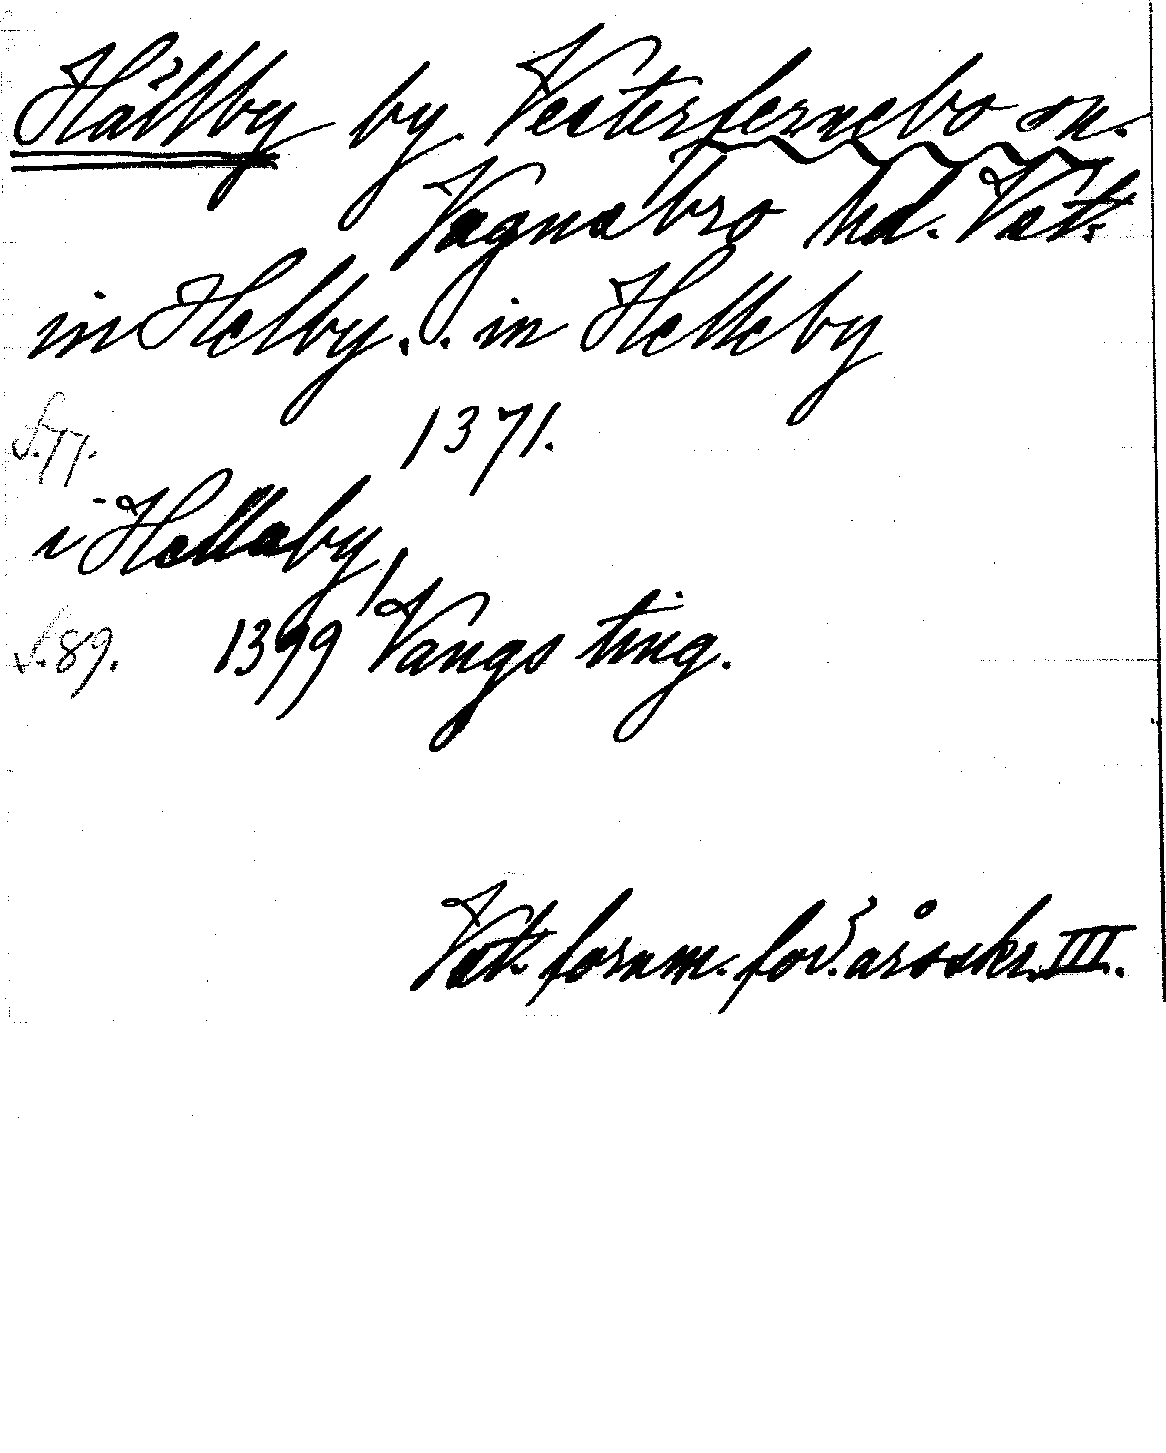 Hällby by Vesterfernebo sn.
Vagnsbro hd. Vstt.
in Helby. . . in Helleby
S. 77. 1371.
i Hellaby,
S. 89. 1399 Vangs ting.
Vstt. fornm. för. årsskr. III.